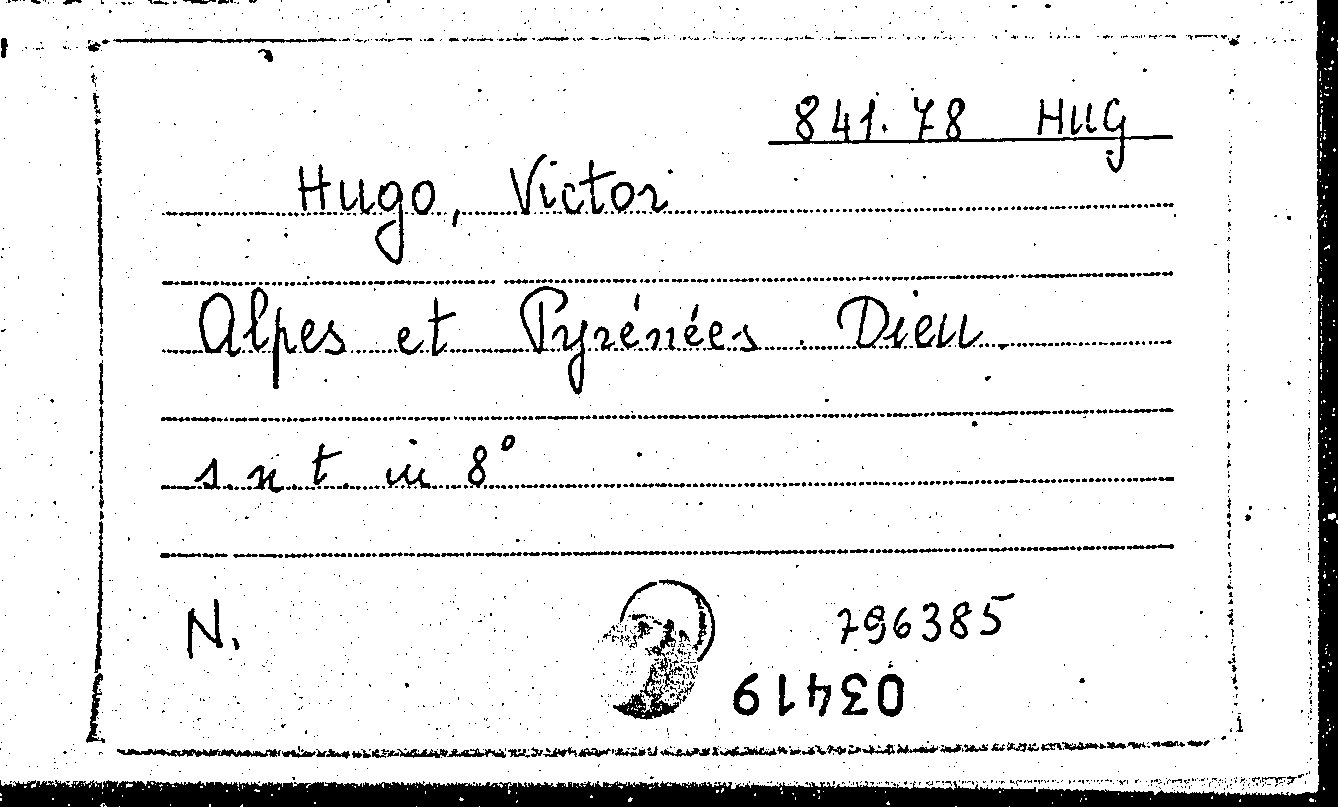 841.78 HUG
Hugo, Victor
Alpes et Pyrénées. Dieu.
s. n. t. in 8°
N.
796385
03419